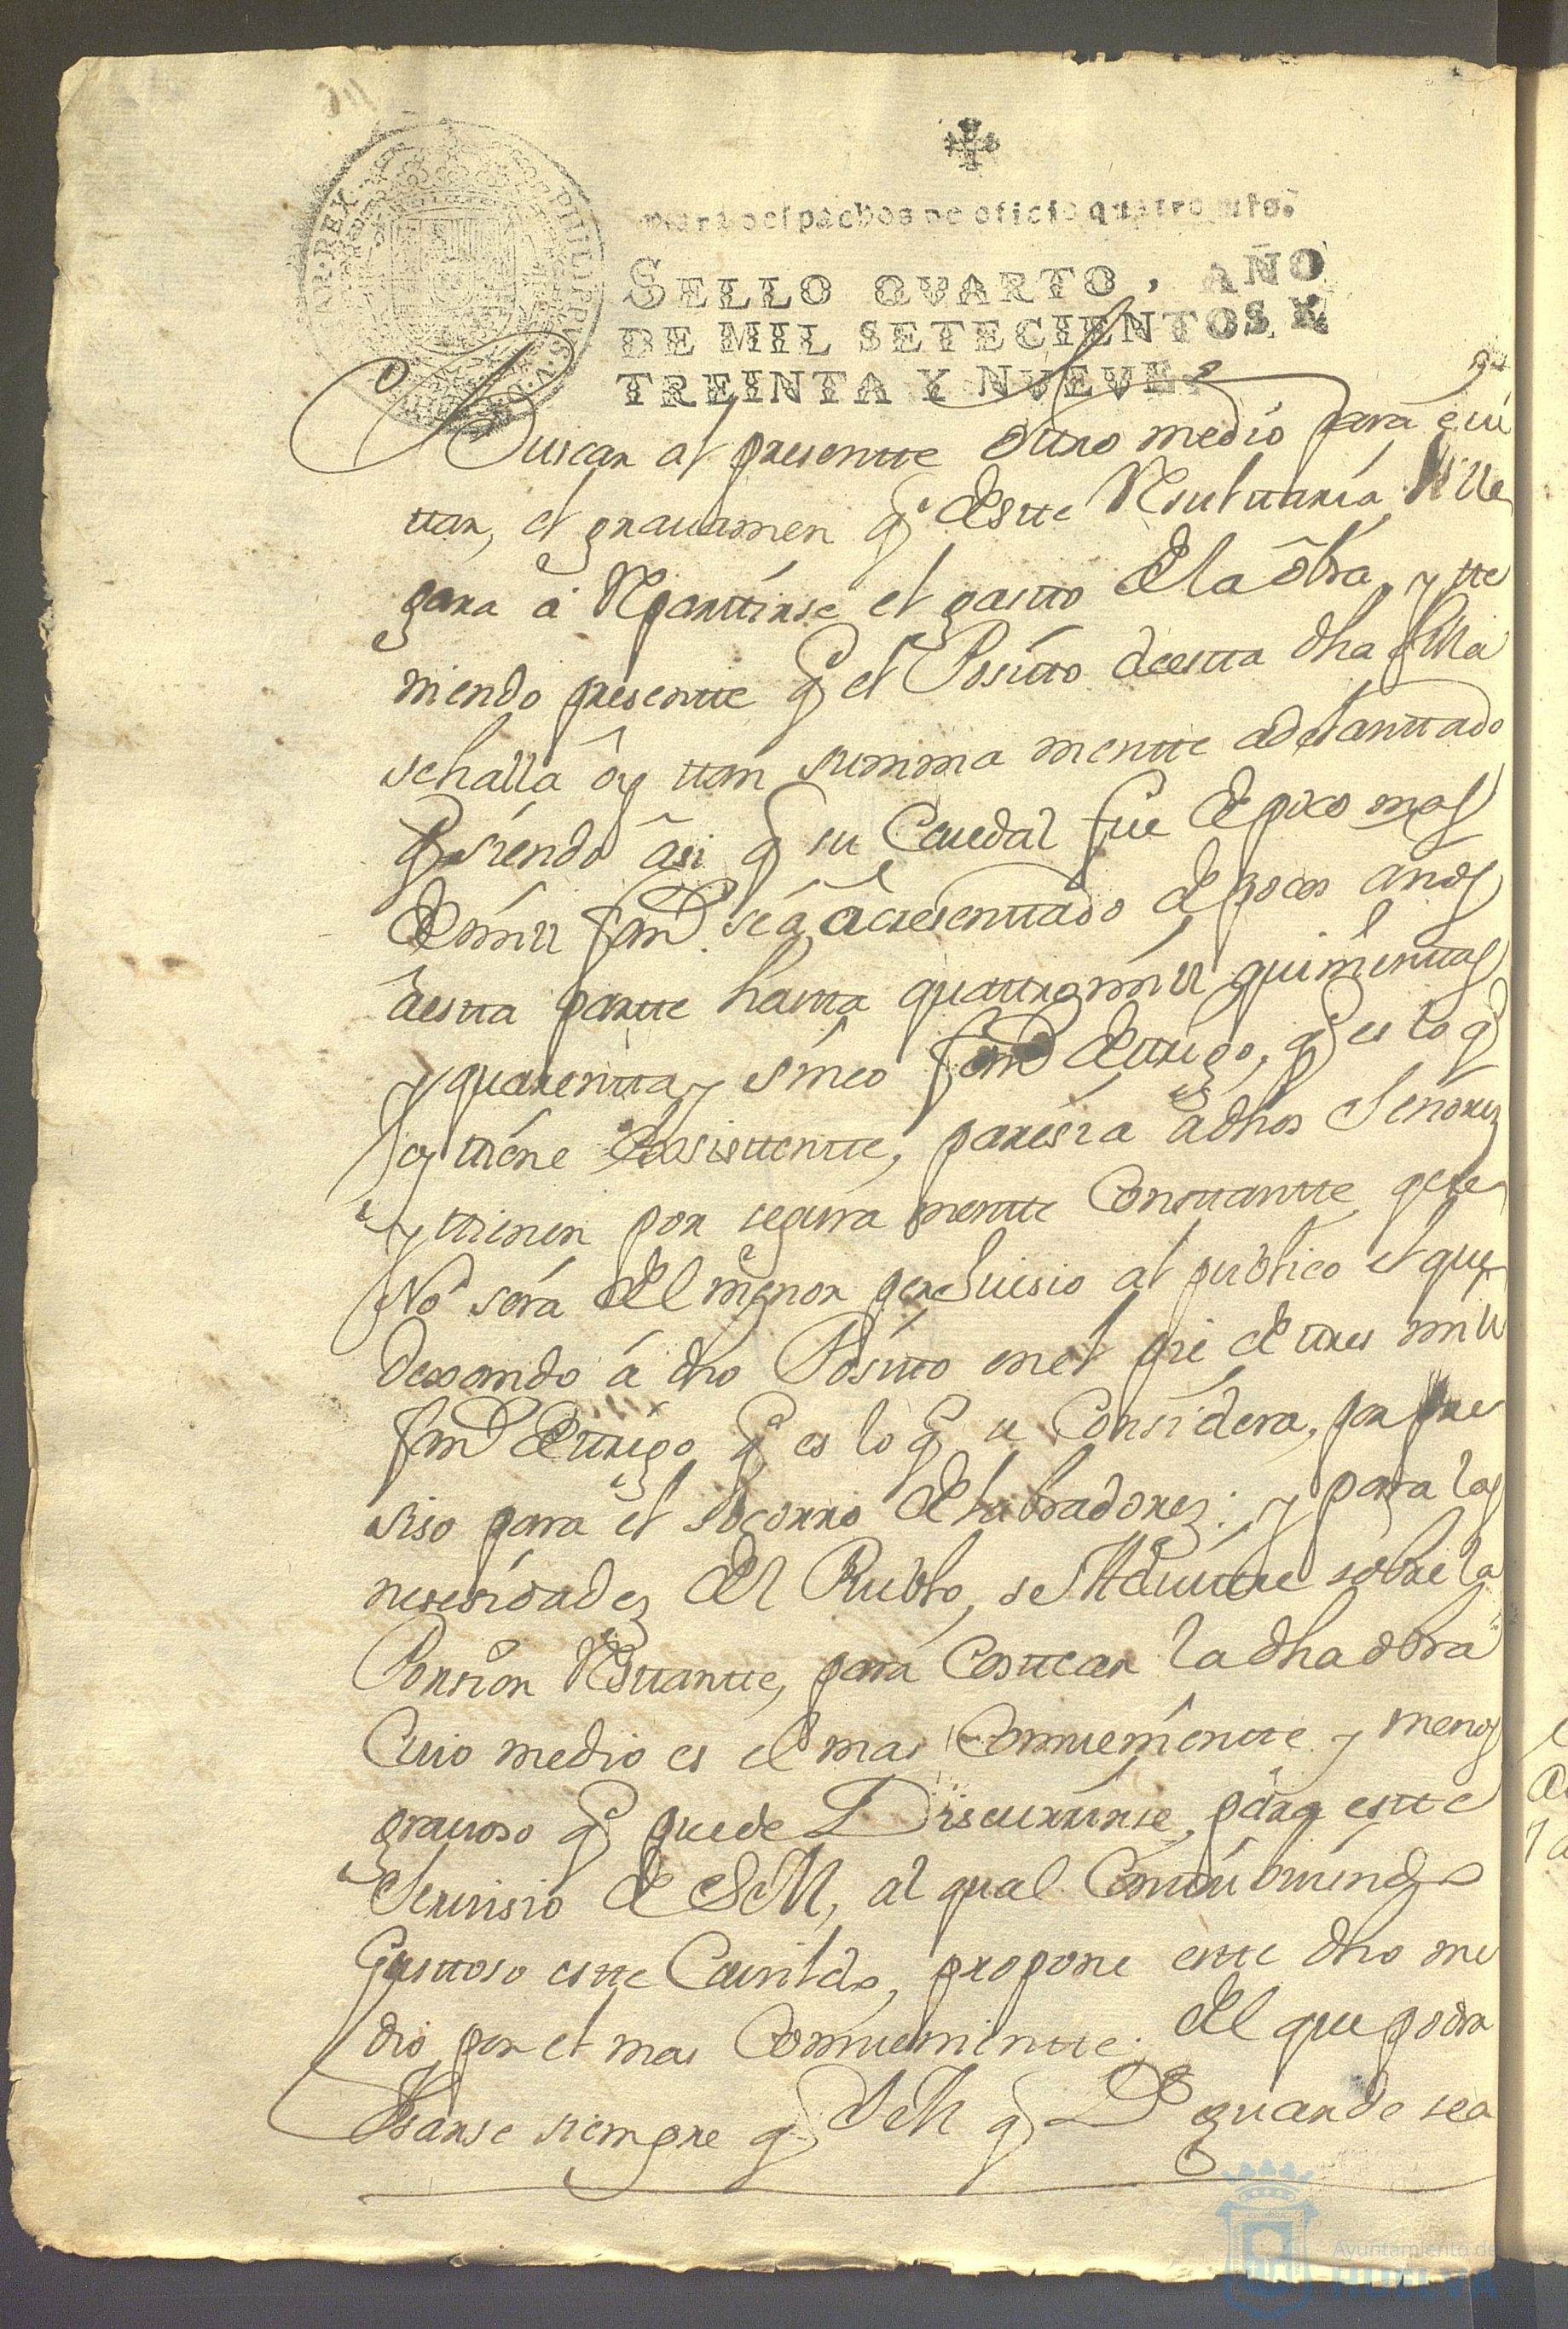 Para despachos de oficio quatro mrs.
SELLO QVARTO, AÑO
DE MIL SETECIENTOS Y
TREINTA Y NVEVE.
PHILIPPVS V D G HISPANIAR REX
Buscar al presentte ottro medio para evi
ttar, el gravamen q̃ desste Resulttaria si lle
gara â Reparttirse el gastto de la ôbra, y tte
niendo presentte q̃ el Positto de estta dha Villa
se halla ôy ttan summa mentte adelanttado
q̃ siendo âsi q̃ su Caudal fue de poco mas
de mill fan.s se â acresenttado de pocos años
âestta partte hastta quattro mill quinienttas
y quarentta y sinco fan.s de ttrigo, q̃ es lo q̃
oy ttiene Exsisttentte, paresia âdhos Señores
y ttienen por segura mentte Consttantte, que
No será del menor perjuisio al publico el que
dexando â dho Positto en el pie de ttres mill
fan.s de ttrigo q̃ es lo q̃ se Considera, por pre
siso para el socorro de labradores; y para las
nesesidades del Pueblo, se
Porsion Resttantte, para Costtear la dha obra
Cuio medio es el mas Combenientte y menos
gravoso q̃ puede Discurrirse, para estte
Servisio de S M, al qual Contribuiendo
Gusttoso estte Cavildo, propone estte dho me
dio por el mas Combenientte, del que podra
Vsarse siempre q̃ S M q̃ D.s guarde sea
Ayuntamiento de
HUELVA